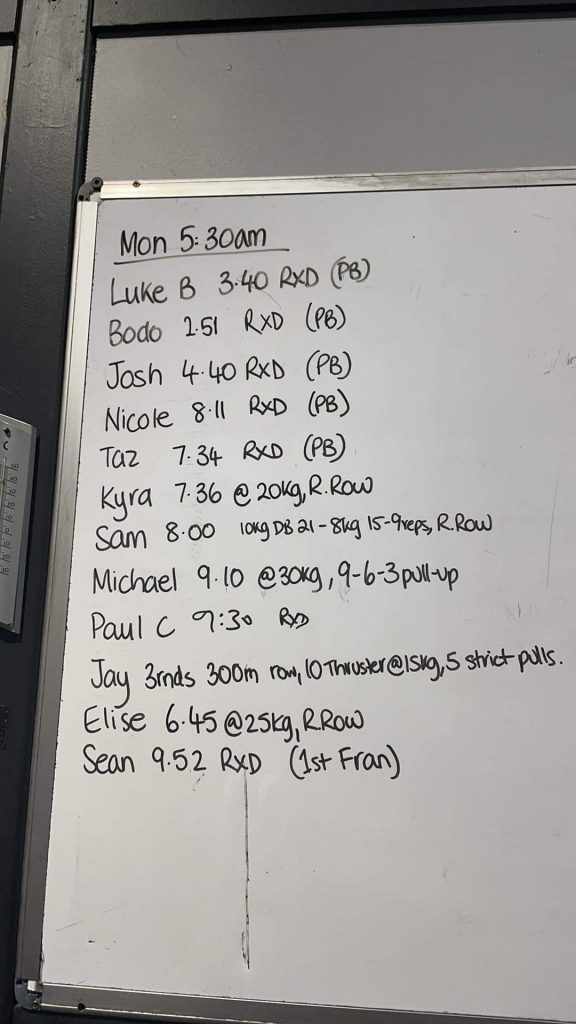 Mon 5:30am
Luke B 3.40 RXD (PB)
Bodo 2.51 RXD (PB)
Josh 4.40 RXD (PB)
Nicole 8.11 RXD (PB)
Taz 7.34 RXD (PB)
Kyra 7.36 @ 20kg, R.Row
Sam 8.00 10kg DB 21-8kg 15-9reps, R.Row
Michael 9.10 @30kg, 9-6-3 pull-up
Paul C 9:30 RXD
Jay 3rnds 300m row, 10 Thruster@15kg, 5 strict pulls.
Elise 6.45 @25kg, R.Row
Sean 9.52 RXD (1st Fran)